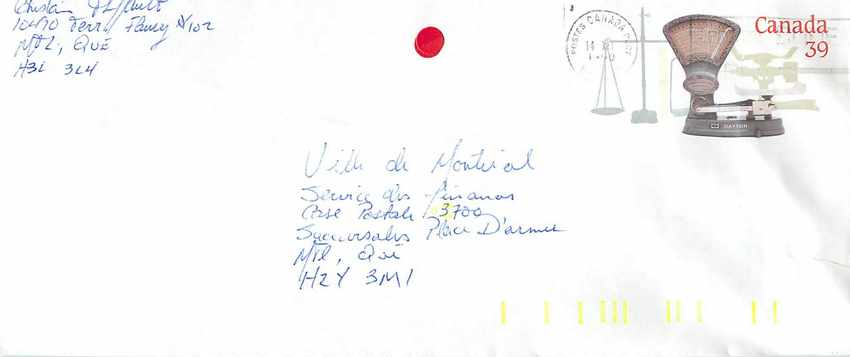 Ghislain
10470 Terry Faury #102
MTL, QUÉ
H3L 3L4
POSTES CANADA POST
14
Canada
39
DAYTON
Ville de Montréal
Service des finances
Case Postale 3700
Succursales Place D'armes
Mtl, Qué
H2Y 3M1